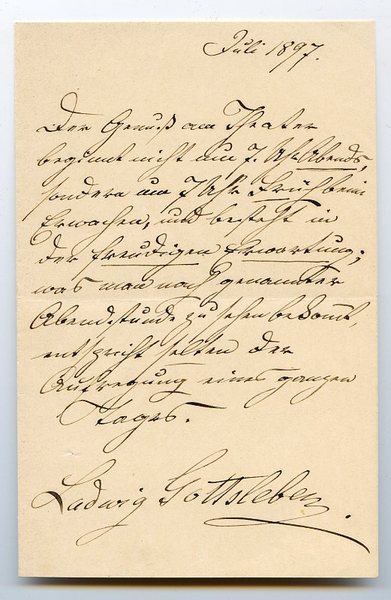 Juli 1897.
Der Genuß am Theater
beginnt nicht um 7 Uhr Abends,
sondern um 7 Uhr Früh beim
Erwachen, und besteht in
der freudigen Erwartung;
was man nach genannter
Abendstunde zu sehen bekommt,
entspricht selten der
Aufregung eines ganzen
Tages.
Ludwig Gottsleben.